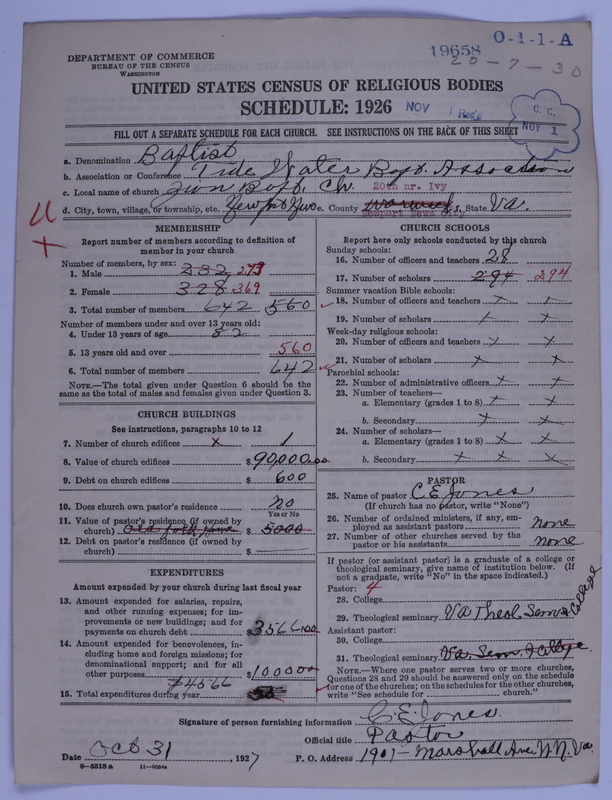 DEPARTMENT OF COMMERCE
BUREAU OF THE CENSUS
WASHINGTON
19658
O-1-1-A
20-7-30
UNITED STATES CENSUS OF RELIGIOUS BODIES
SCHEDULE: 1926
NOV 1 Rec'd
C. C.
NOV 1
FILL OUT A SEPARATE SCHEDULE FOR EACH CHURCH. SEE INSTRUCTIONS ON THE BACK OF THIS SHEET
a. Denomination Baptist
b. Association or Conference Tide Water Bapt. Association
c. Local name of church Zion Bapt. Ch. 20th nr. Ivy
d. City, town, village, or township, etc. Newport News e. County Warwick Newport News City f. State Va.
MEMBERSHIP
Report number of members according to definition of
member in your church
Number of members, by sex:
1. Male 232 273
2. Female 328 369
3. Total number of members 642 560
Number of members under and over 13 years old:
4. Under 13 years of age 82
5. 13 years old and over 560
6. Total number of members 642
NOTE.—The total given under Question 6 should be the
same as the total of males and females given under Question 3.
CHURCH BUILDINGS
See instructions, paragraphs 10 to 12
7. Number of church edifices x 1
8. Value of church edifices $90,000.00
9. Debt on church edifices $ 600
10. Does church own pastor's residence no
Yes or No
11. Value of pastor's residence (if owned by
church) Old folk home $ 5000
12. Debt on pastor's residence (if owned by
church) $
EXPENDITURES
Amount expended by your church during last fiscal year
13. Amount expended for salaries, repairs,
and other running expenses; for im-
provements or new buildings; and for
payments on church debt $3566.00
14. Amount expended for benevolences, in-
cluding home and foreign missions; for
denominational support; and for all
other purposes $1000.00
$4566
15. Total expenditures during year $
CHURCH SCHOOLS
Report here only schools conducted by this church
Sunday schools:
16. Number of officers and teachers 28
17. Number of scholars 294 294
Summer vacation Bible schools:
18. Number of officers and teachers x x
19. Number of scholars x x
Week-day religious schools:
20. Number of officers and teachers x x
21. Number of scholars x x
Parochial schools:
22. Number of administrative officers x x
23. Number of teachers—
a. Elementary (grades 1 to 8) x x
b. Secondary x x
24. Number of scholars—
a. Elementary (grades 1 to 8) x x
b. Secondary x x x
PASTOR
25. Name of pastor C. E. Jones
(If church has no pastor, write "None")
26. Number of ordained ministers, if any, em-
ployed as assistant pastors none
27. Number of other churches served by the
pastor or his assistants none
If pastor (or assistant pastor) is a graduate of a college or
theological seminary, give name of institution below. (If
not a graduate, write "No" in the space indicated.)
Pastor: 4
28. College
29. Theological seminary Va Theol. Sem & College
Assistant pastor:
30. College
31. Theological seminary Va. Sem. & College.
NOTE.—Where one pastor serves two or more churches,
Questions 28 and 29 should be answered only on the schedule
for one of the churches; on the schedules for the other churches,
write "See schedule for church."
Signature of person furnishing information C. E. Jones.
Official title Pastor
Date Oct 31, 1927 P. O. Address 1907 Marshall Ave. N.N. Va.
8—5518a 11—9054a